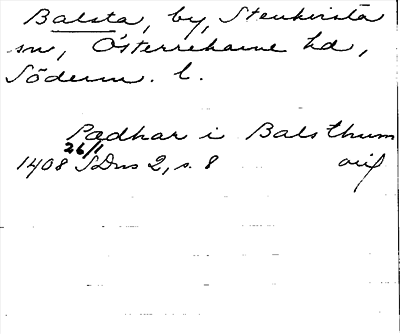 Balsta, by, Stenkvista
sn, Österrekarne hd,
Söderm. l.
Pædhar i Balsthum
26/1
1408 SDns 2, s. 8 avs